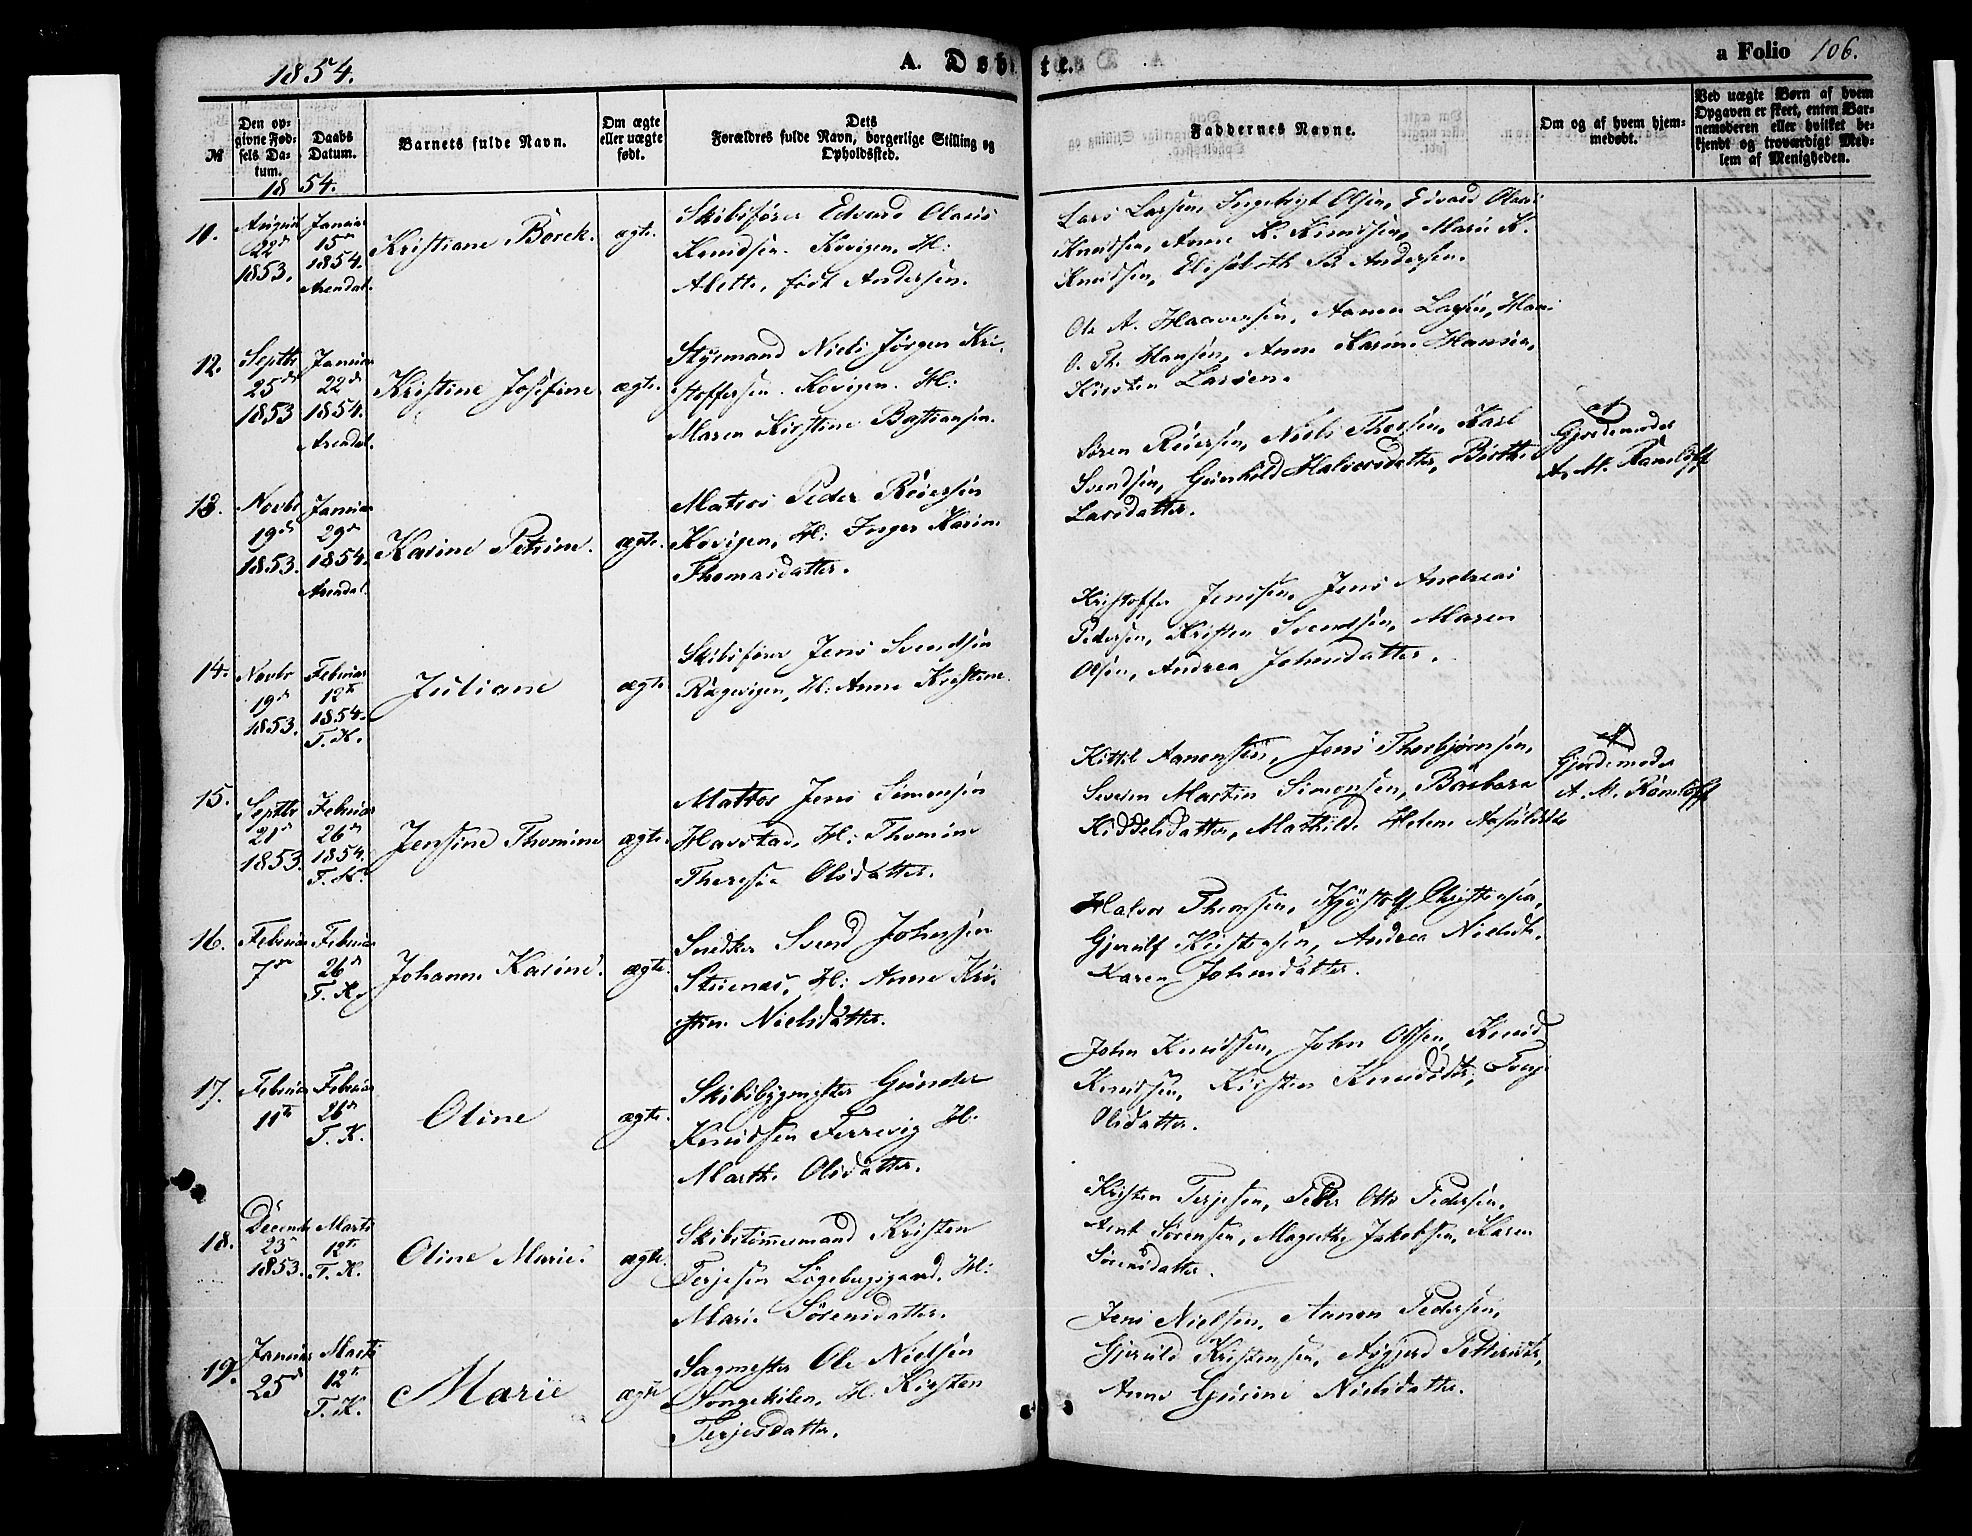 1854.
A. Døbte.
a Folio 106.
№
Den opgivne Fødsels Datum.
Daabs Datum.
Barnets fulde Navn.
Om ægte eller uægte født.
Dets Forældres fulde Navn, borgerlige Stilling og Opholdssted.
Faddernes Navne.
Om og af hvem hjemmedøbt.
Ved uægte Børn af hvem Opgaven er skeet, enten Barnemoderen eller hvilket bekjendt og troværdigt Medlem af Menigheden.
18 54.
11.
August
22de
1853.
Januar
15de
1854.
Arendal.
Kristiane Borck.
ægte.
Skibsfører Edvard Olaus
Knudsen. Kovigen. H:
Alette, født Andersen.
Lars Larsen, Ingebrigt Olsen, Edvard Olaus
Knudsen, Anne K. Knudsen, Maria K.
Knudsen, Elisabeth B. Andersen.
12.
Septbr
25de
1853
Januar
22de
1854.
Arendal.
Kristine Josefine
ægte.
Styrmand Niels Jørgen Kri-
stoffersen. Kovigen. H:
Maren Kirstine Bastiansen.
Ole A. Haaversen, Aanen Larsen, Hans
O. Th. Hansen, Anne Karine Hansen,
Kirsten Larsen.
13.
Novbr
19de
1853.
Januar
29de
1854.
Arendal.
Karine Petrine.
ægte.
Matros Peder Reiersen
Kovigen, H: Inger Karine
Thomasdatter.
Søren Reiersen, Niels Thersen, Karl
Svendsen, Gunhild Halvorsdatter, Birthe
Larsdatter.
af
Gjordemoder
A. M. Ramloff
14.
Novbr
19de
1853.
Februar
12te
1854.
T. K.
Juliane
ægte
Skibsfører Jens Svendsen
Rægevigen, H: Anne Kirstine
Kristoffer Jensen, Jens Andreas
Pedersen, Kristen Svendsen, Maren
Olsen, Andrea Johnsdatter.
15.
Septbr
21de
1853.
Februar
26de
1854.
T. K.
Jensine Thomine
ægte.
Matros Jens Simonsen
Havstad, H: Thomine
Therese Olsdatter.
Kittil Aanensen, Jens Thorbjørnsen,
Severin Martin Simonsen, Barbara
Kiddelsdatter, Mathilde Helene
af
Gjordemoder
A. M. Ramloff
16.
Februar
7de
Februar
26de
T. K.
Johanne Karine.
ægte.
Snedker Svend Johnsen
Stuenæs, H: Anne Kri-
stine Nielsdatter.
Halvor Thomsen, Kjøstolf Christensen,
Gjerulf Kristensen, Andrea Nielsdtr.
Karen Johnsdatter.
17.
Februar
11te
Februar
26de
T. K.
Oline
ægte.
Skibsbygmester Gunder
Knudsen Ferrevig H:
Marthe Olsdatter.
John Knudsen, John Olsen, Knud
Knudsen, Kirsten Knudsdtr,
Olsdatter.
18.
Decembr
23de
1853.
Marts
12te
T. K.
Oline Marie.
ægte.
Skibstømmermand Kristen
Terjesen Løgebugsgaard, H:
Marie Sørensdatter.
Kristen Terjesen, Peder Otto Pedersen,
Arnt Sørensen, Magrethe Jakobsen, Karen
Sørensdatter.
19.
Januar
25de
Marts
12te
T. K.
Marie
ægte
Sagmester Ole Nielsen
Songekilen, H: Kirsten
Terjesdatter.
Jens Nielsen, Aanon Pedersen,
Gjeruld Kristensen, Asgjerd
Anne Gurine Nielsdatter.